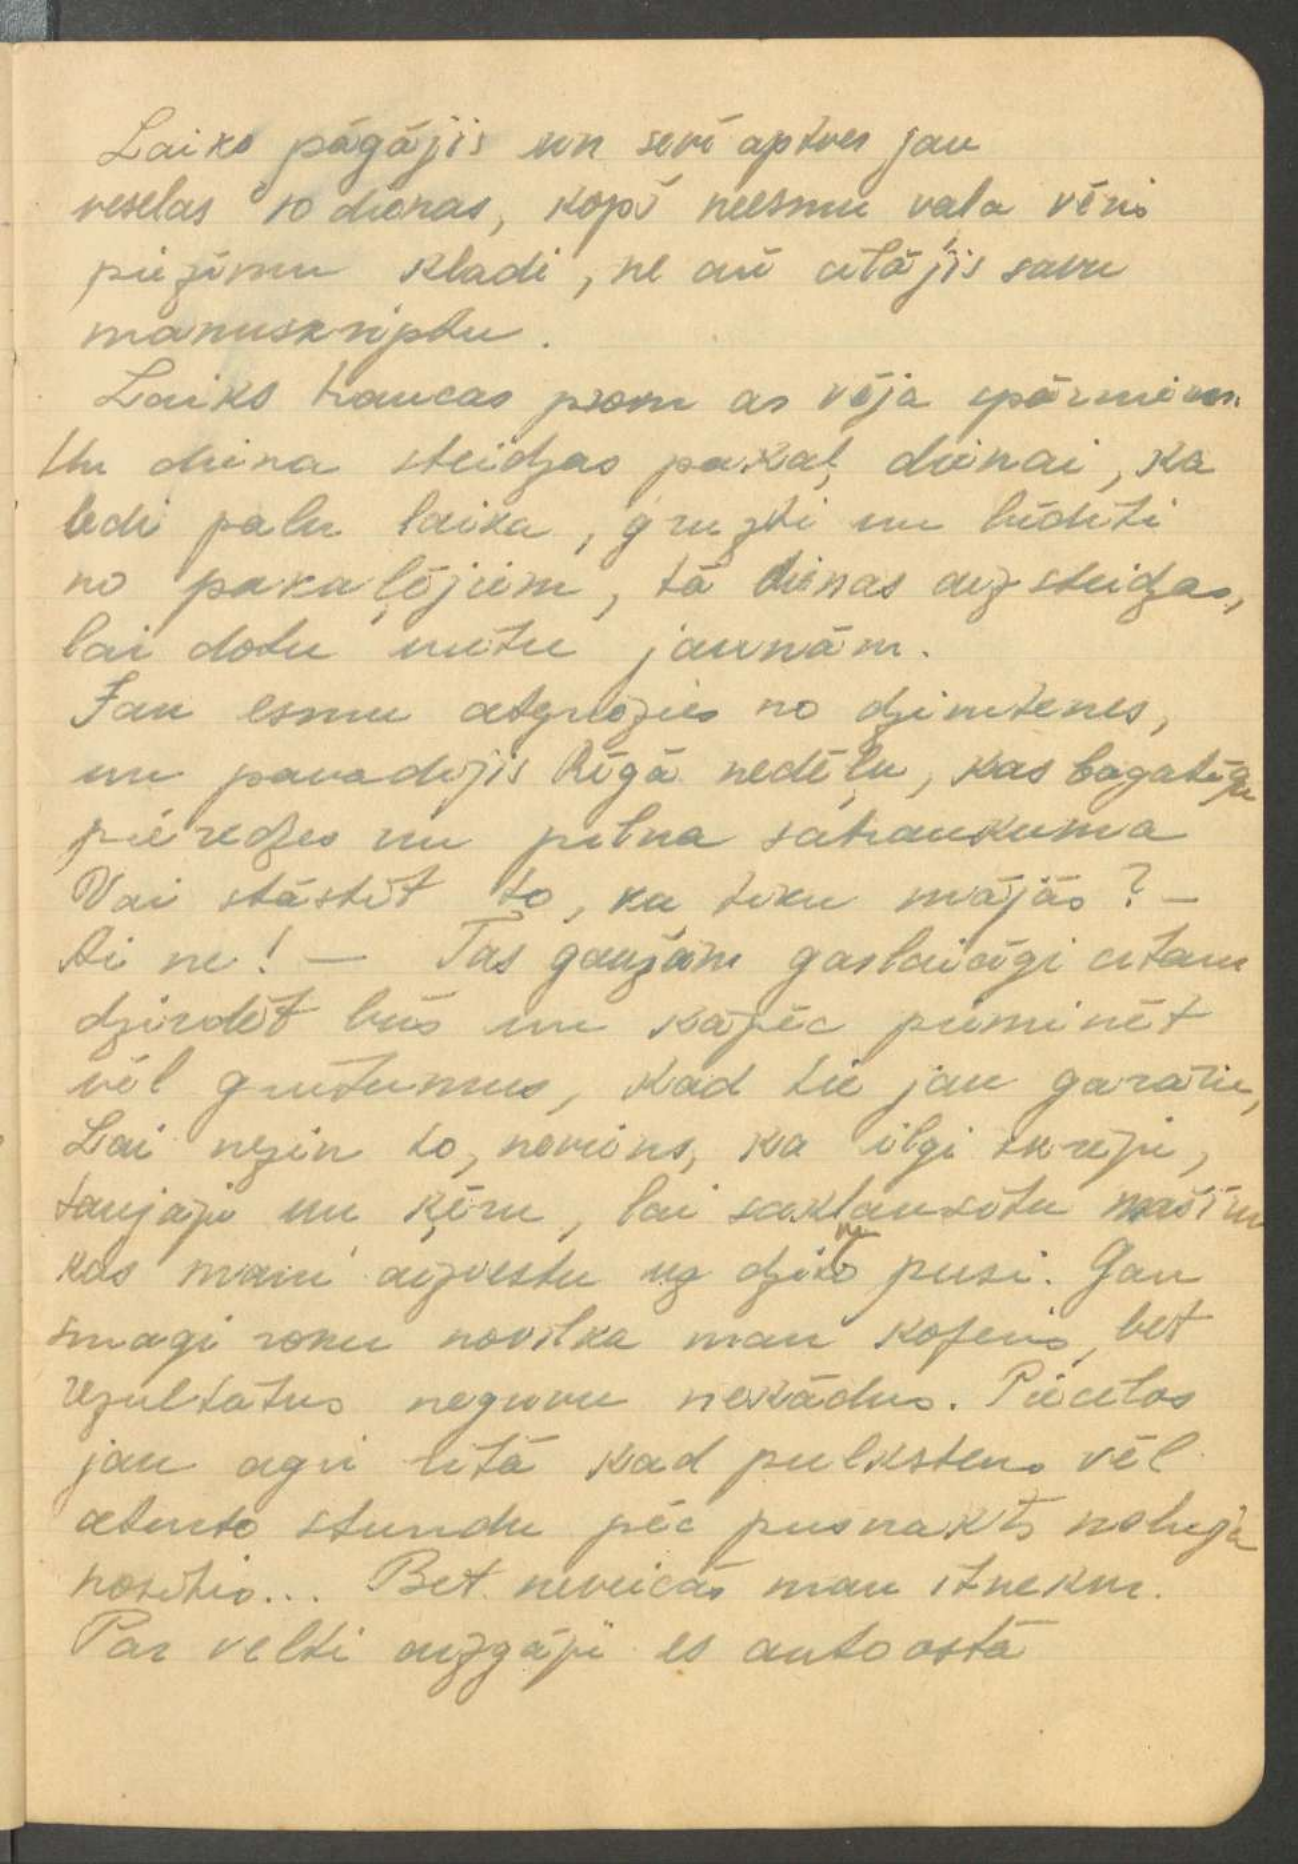 Laiks pāgājis un sevī aptver jau
veselas 10 dienas, kopš neesmu vala vēris
piezīmu kladi, ne arī citājis savu
manuskriptu.
Laiks traucas prom as vēja spārniem.
Un diena steidzas pakaļ dienai, ka
ledi palu laika, gruzti un bīdīti
no pakaļējiem, tā dienas aizsteidzas,
lai dotu vietu jaunām.
Jau esmu atgriezies no dzimtenes,
un pavadijis Rīgā nedēļu, kas bagatīga
pieredzes un pilna satraukuma
Vai stāstīt to, ka tiku mājās? –
Ai ne! – Tas gaužām garlaicīgi citam
dzirdēt būs un kāpēc pieminēt
vēl grutumus, kad tie jau garām,
Lai nezin to, neviens, ka ilgi skrēju,
taujāju un ķēru, lai saklausītu mašīnu
kas mani aizvestu uz dzimto pusi. Gan
smagi roku novilka man koferis, bet
rezultatus neguvu nekādus. Piecēlos
jau agri rītā kad pulkstens vēl
ceturto stundu pēc pusnakts nebija
nositis... Bet neveicās man itnekur.
Par velti aizgāju es autoostā